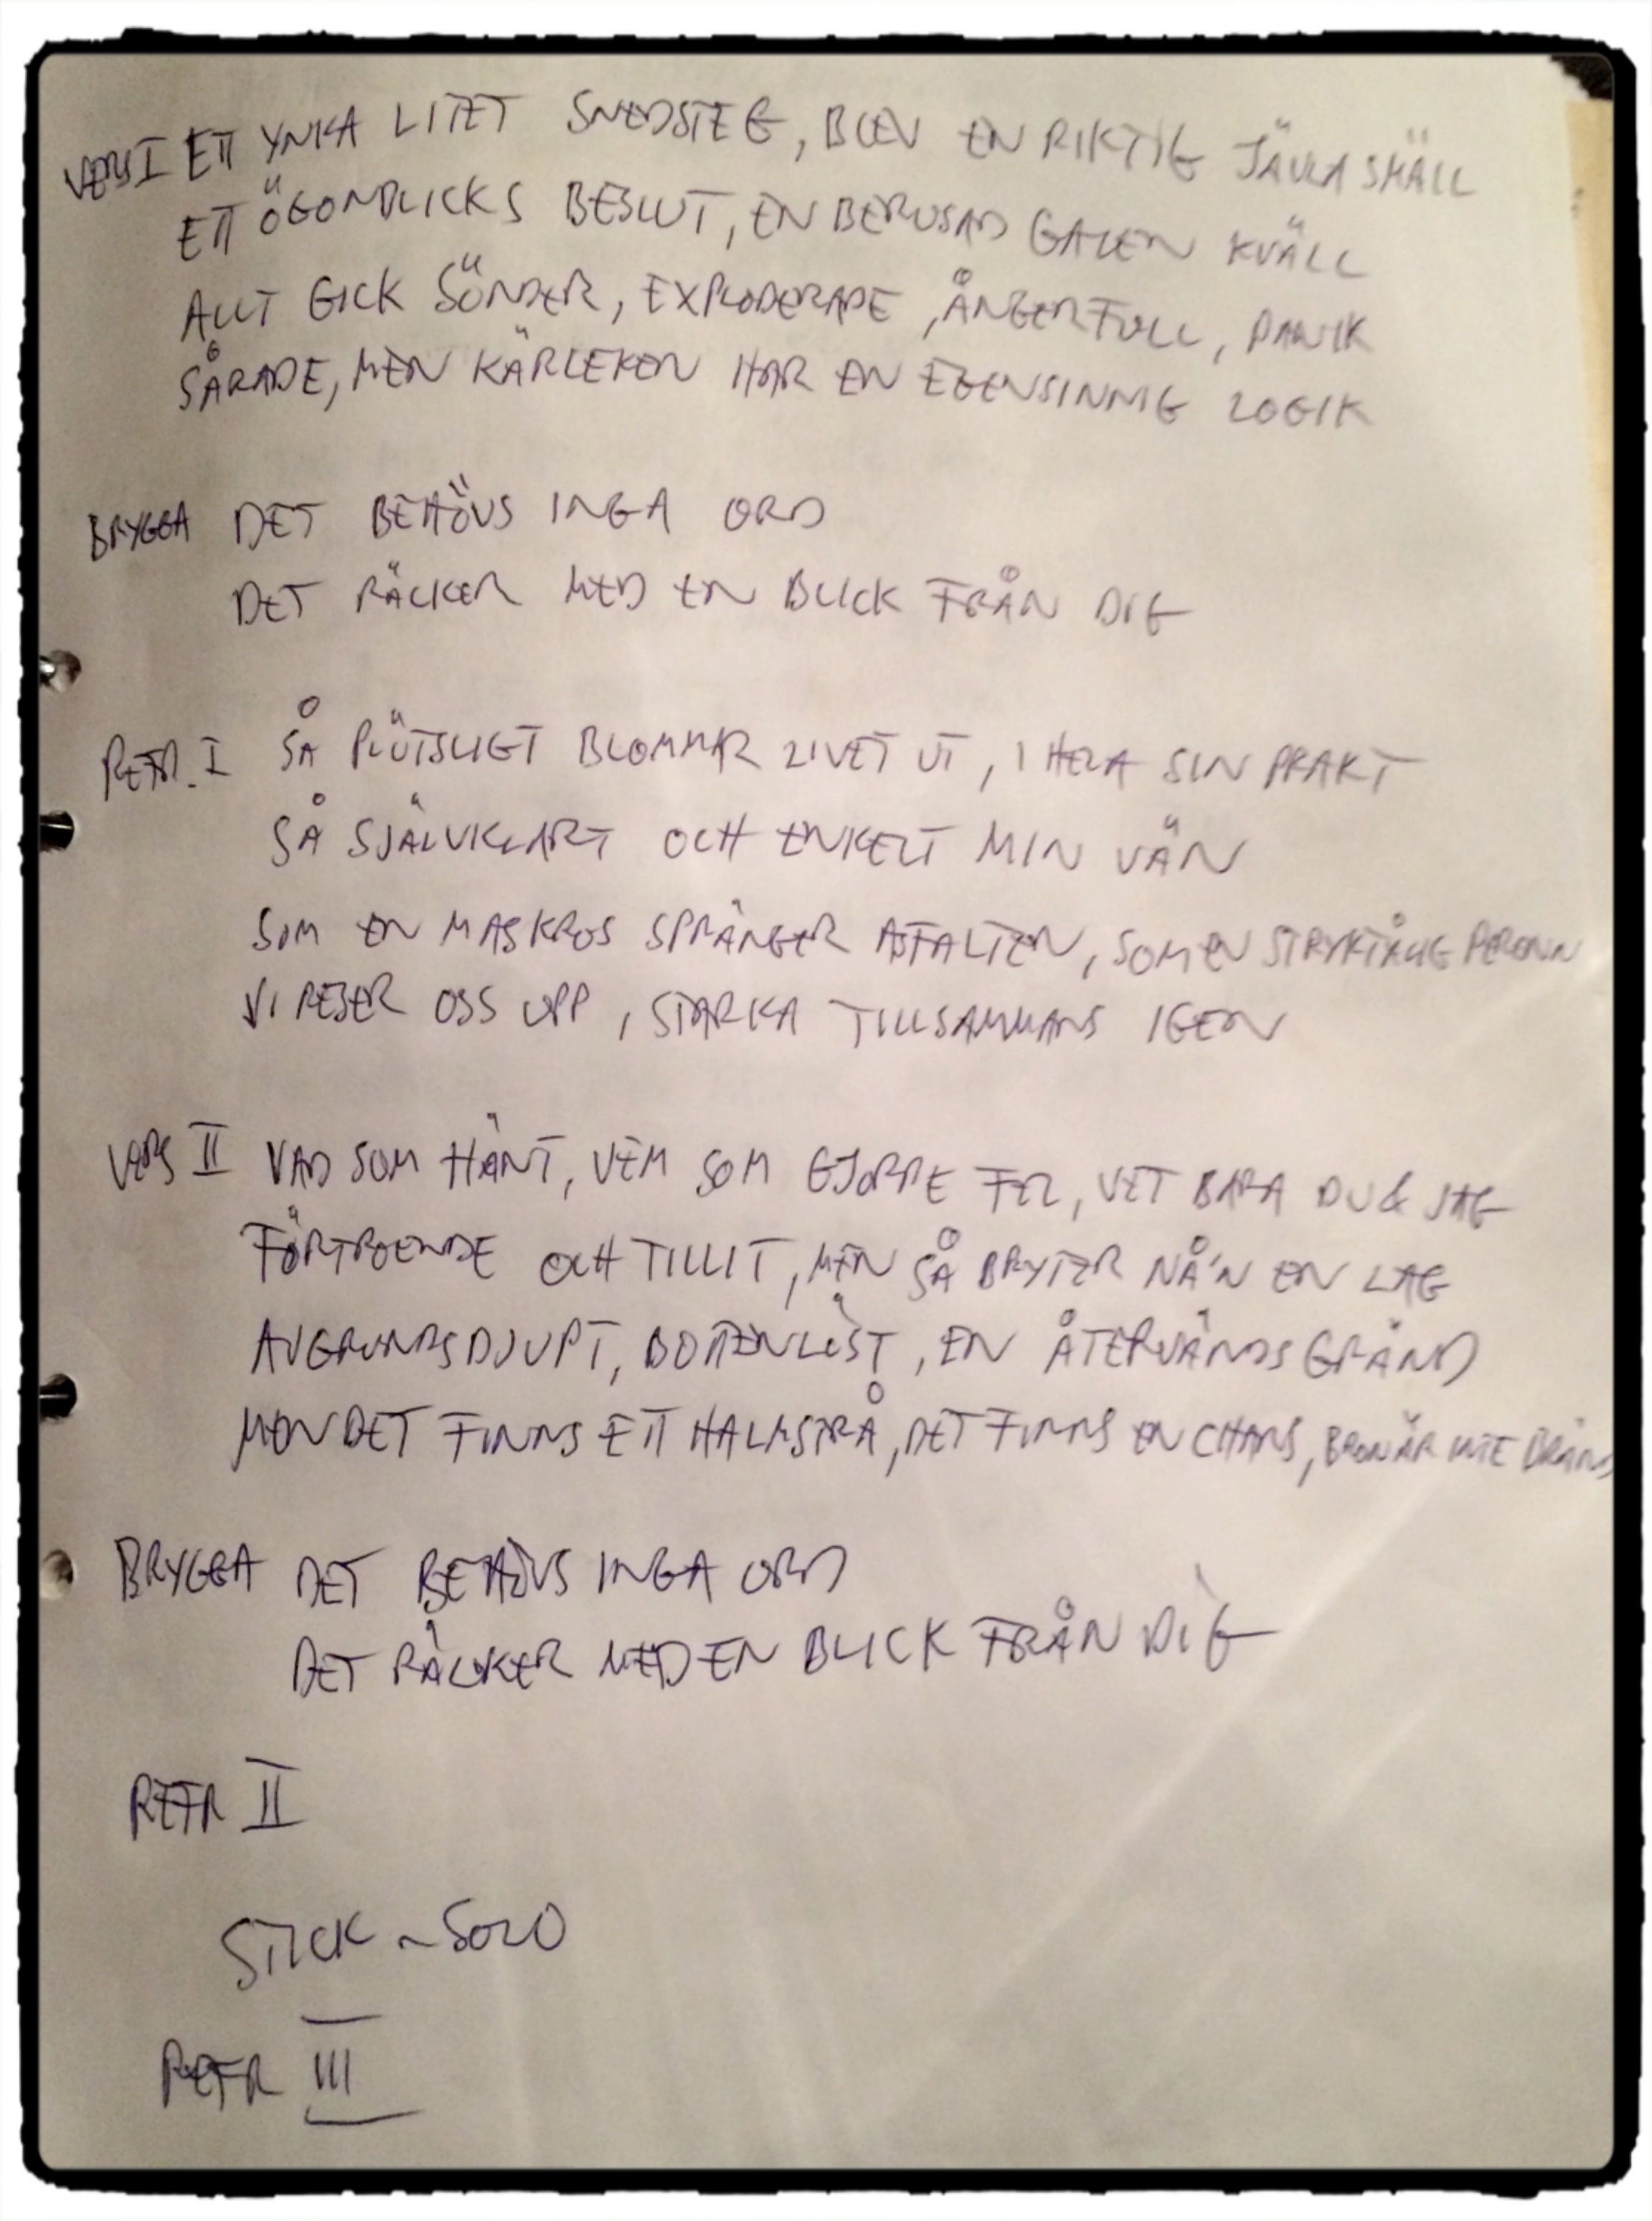 VERS I ETT YNKA LITET SNEDSTEG, BLEV EN RIKTIG JÄVLA SMÄLL
ETT ÖGONBLICKS BESLUT, EN BERUSAD GALEN KVÄLL
ALLT GICK SÖNDER, EXPLODERADE, ÅNGERFULL, PANIK
SÅRADE, MEN KÄRLEKEN HAR EN EGENSINNIG LOGIK
BRYGGA DET BEHÖVS INGA ORD
DET RÄCKER MED EN BLICK FRÅN DIG
REFR. I SÅ PLÖTSLIGT BLOMMAR LIVET UT, I HELA SIN PRAKT
SÅ SJÄLVKLART OCH ENKELT MIN VÄN
SOM EN MASKROS SPRÄNGER ASFALTEN, SOM EN STRYKTÅLIG PERENN
VI RESER OSS UPP, STARKA TILLSAMMANS IGEN
VERS II VAD SOM HÄNT, VEM SOM GJORDE FEL, VET BARA DU & JAG
FÖRTROENDE OCH TILLIT, MEN SÅ BRYTER NÅ'N EN LAG
AVGRUNDSDJUPT, BOTTENLÖST, EN ÅTERVÄNDSGRÄND
MEN DET FINNS ETT HALMSTRÅ, DET FINNS EN CHANS, BRON ÄR INTE BRÄND
BRYGGA DET BEHÖVS INGA ORD
DET RÄCKER MED EN BLICK FRÅN DIG
REFR II
STICK ~ SOLO
REFR III